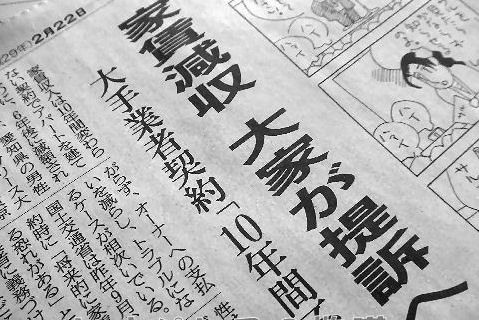 29年)2月22日
家賃減収 大家が提訴へ
大手業者契約「10年間
家賃収入は10年間変わら
ない契約でアパートを建て
6年後に減額され
愛知県の男性
リース大
がらず、オーナーへの支払
いを減らし、トラブルにな
るケースが相次いでいる。
国土交通省は昨年9月、
約時に「将来的に家
る恐れがある」と
者に義務づけ